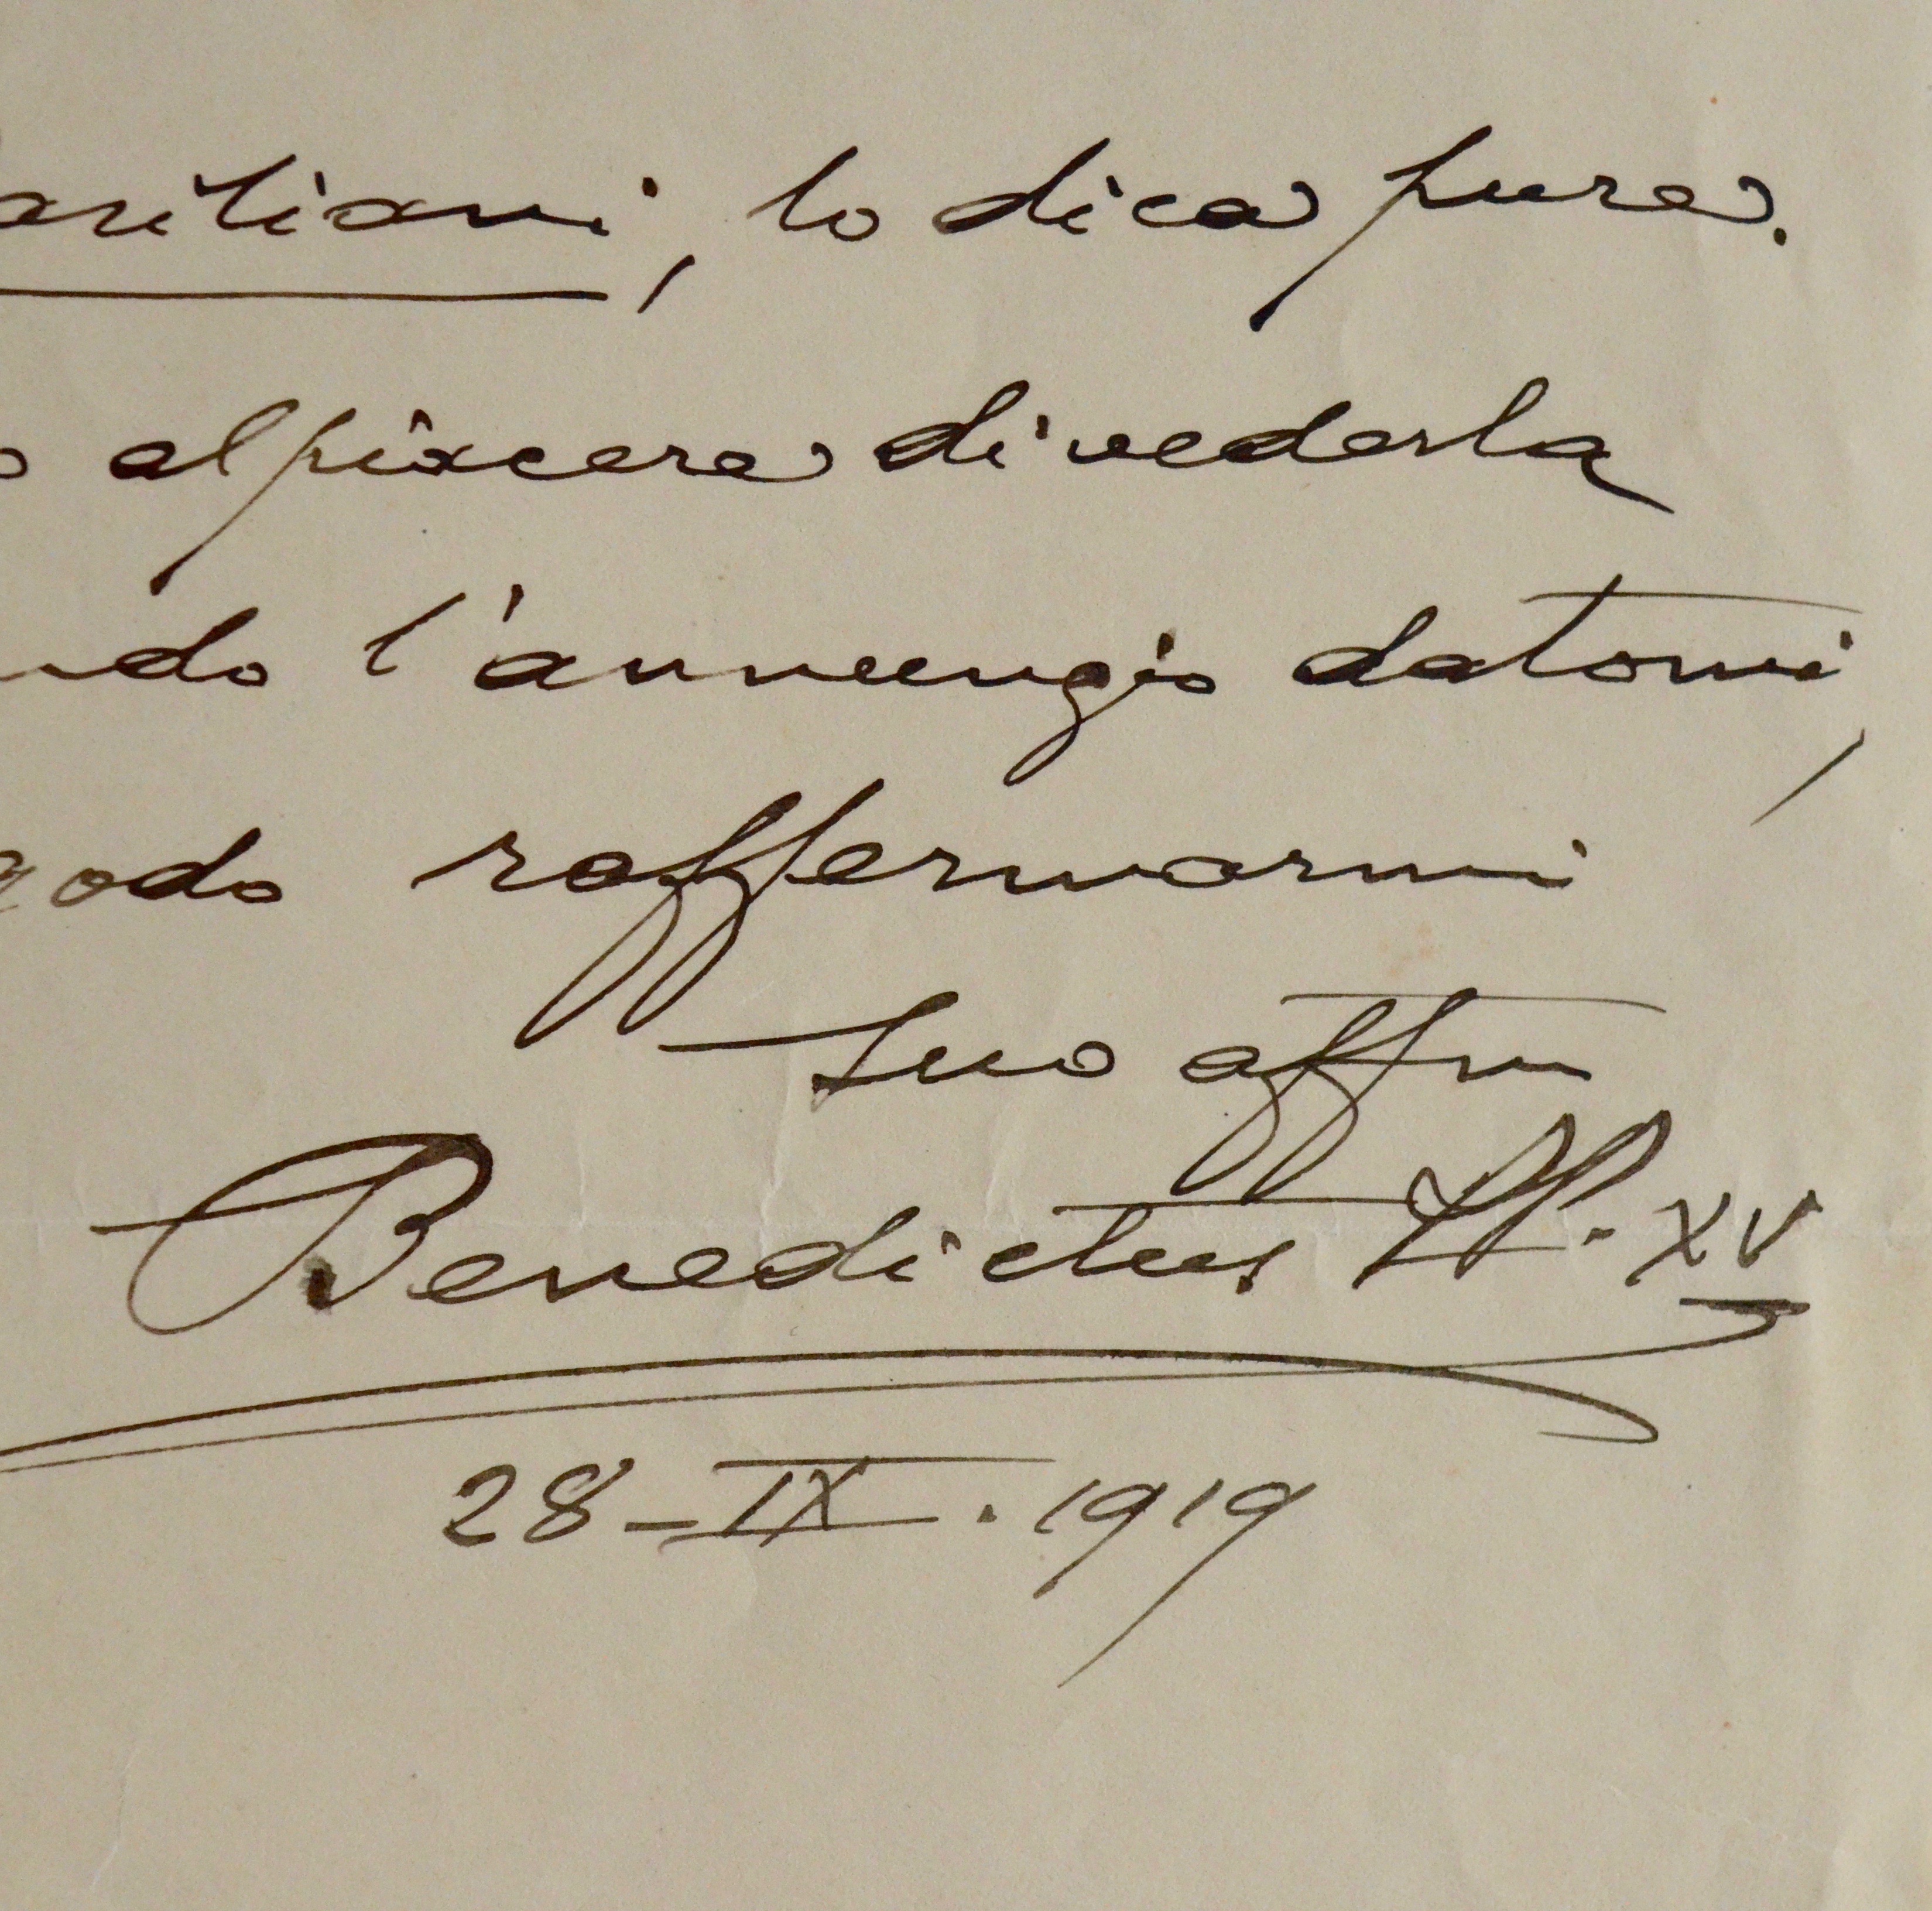 aritiani, lo dica pure.
o al piacere di vederla
ndo l'annungio datomi,
godo raffermarmi
Suo affm
Benedictus PP. XV
28-IX.1919